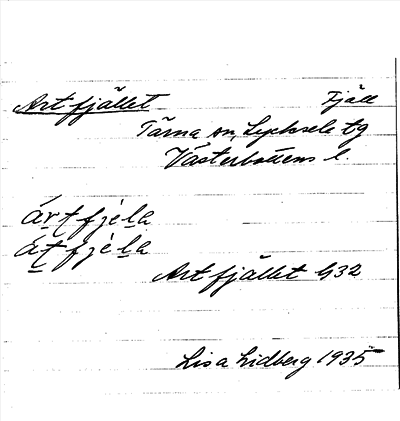 Artfjället Fjäll
Tärna sn, Lycksele tg
Västerbottens l.
ártfjèla
átfjèla
Artfjället G32
Lisa Lidberg 1935